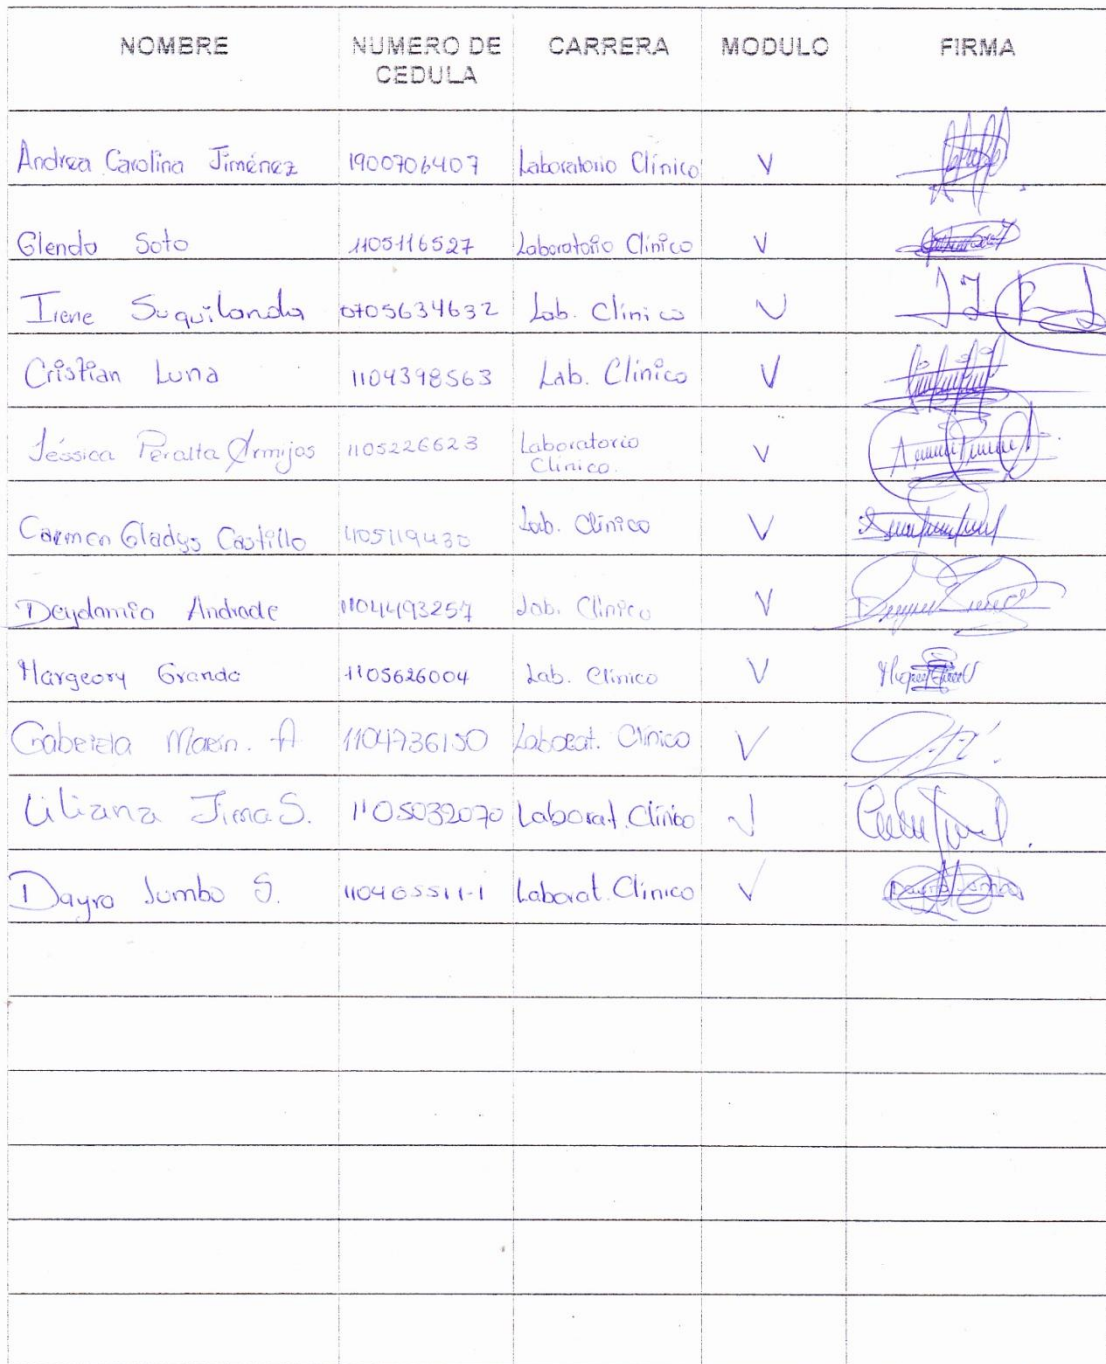 NOMBRE NUMERO DE CEDULA CARRERA MODULO FIRMA
Andrea Carolina Jiménez 1900706407 Laboratorio Clínico V
Glenda Soto 1105116527 Laboratorio Clínico V
Irene Suquilanda 0705634632 Lab. Clinico V
Cristian Luna 1104398563 Lab. Clínico V
Jéssica Peralta Armijos 1105226623 Laboratorio Clínico. V
Carmen Gladys Castillo 1105119430 Lab. Clínico V
Deydamia Andrade 1104493257 Lab. Clínico V
Margeory Granda 1105626004 Lab. Clinico V
Gabriela Marín. A 1104736150 Laborat. Clínico V
Liliana Jima S. 1105032070 Laborat. Clínico V
Dayra Jumbo S. 110465511-1 Laborat. Clínico V